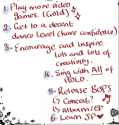 Play more video
games. (Gold)
2. Get to a decent
dance level (more confidence)
3. Encourage and Inspire
lots and lots of
creativity.
4. Sing with All of
HOLO.
5. Release BOPS
Concept?
album/EP
6. Learn JP